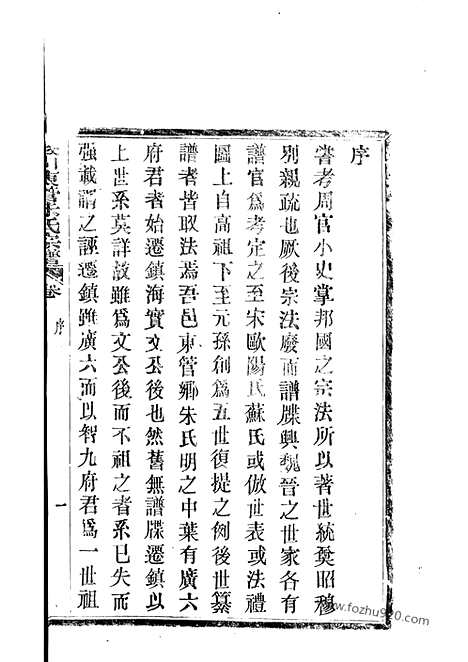 序
嘗考周官小史掌邦國之宗法所以著世統奠昭穆
別親疏也厥後宗法廢而譜牒興魏晉之世家各有
譜官為考定之至宋歐陽氏蘇氏或倣世表或法禮
圖上自高祖下至元孫創為五世復提之例後世纂
譜者皆取法焉吾邑東管鄉朱氏明之中葉有廣六
府君者始遷鎮海實文公後也然舊無譜牒遷鎮以
上世系莫詳故雖為文公後而不祖之者系已失而
強載謂之誣遷鎮雖廣六而以智九府君為一世祖
氏宗譜 卷
序
一
www.fozhu920.com